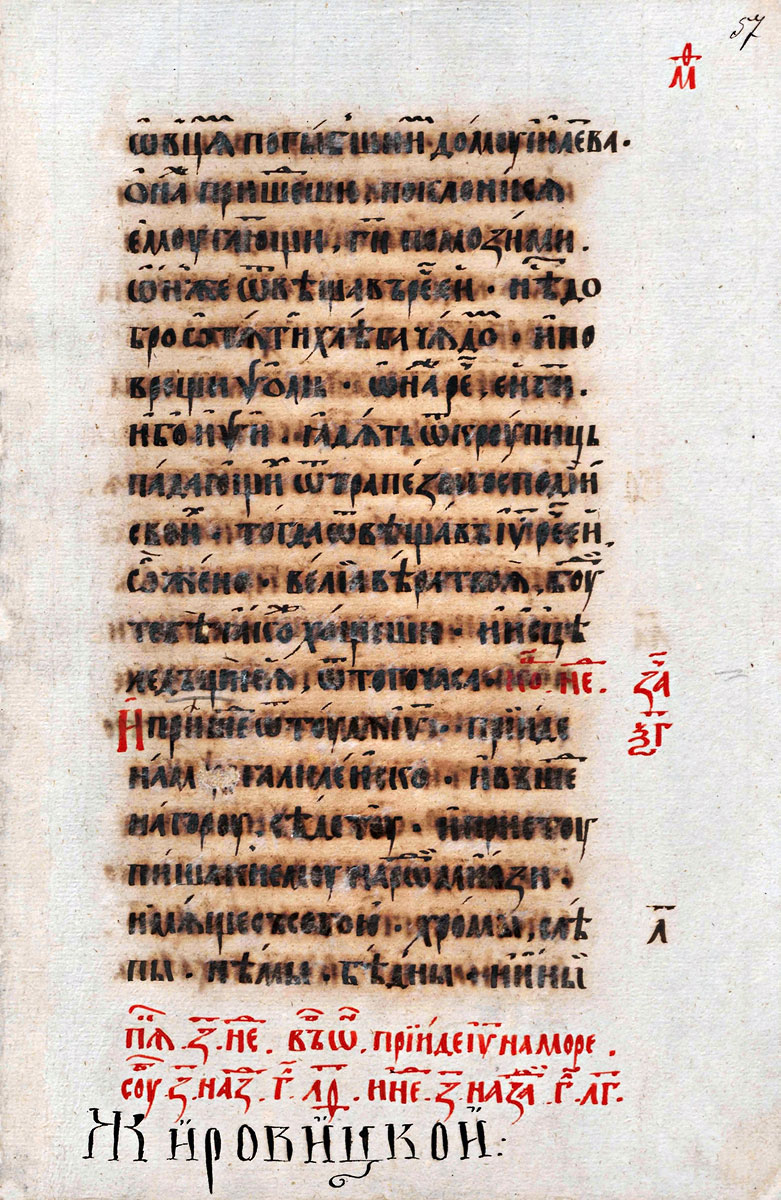 57
м҃
ѡвцѧ погыбшиⷯ домоу і҃илева.
ѻна пришеⷣши, поклонисѧ
емоу гл҃ющи, гⷭ҇и помоѕи ми.
ѡнже ѿвѣщавъ рече еи. нѣⷭ до
бро ѿѧти хлѣба чѧдоⷨ. и по
врещи псоⷨ. ѡна реⷱ҇, еи гⷭ҇и.
ибо и пси. ꙗдѧть ѿ кроупиць
падающиⷯ ѿ трапезы господіи
своиⷯ. тогда ѿвѣщавъ іс҃ рече еи,
ѽ жено. велїа вѣра твоѧ, боуⷣ
тебѣ ꙗкоⷤ хощеши. и исцѣ
лѣ дъщи еѧ, ѿ того часа. коⷩ҇ не. заⷱ
И прешеⷣ ѿтоудоу іс҃. прїиде ѯ҃г
на мор галилеиско. и въшеⷣ
на гороу, сѣде тоу. и пристоу
пиша к немоу народи мнози.
имѧще съ собою. хромы, слѣ л҃
пы. нѣмы. бѣдны. и ины
пїѧ. з҃. не. въ ѡ. прїиде іс҃ на море.
соуⷠ. з҃. наⷣ. г҃. л҃ѳ. и не. з҃. на заⷱ. г҃. л҃г.
Жировицкой: